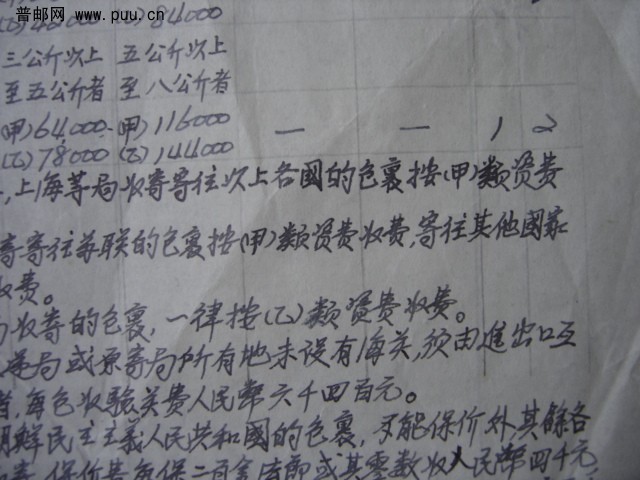 普邮网
www.puu.cn
84000
三公斤以上 五公斤以上
至五公斤者 至八公斤者
(甲)64000 (甲)116000 一 一 1 2
(乙)78000 (乙)144000
上海等局收寄寄往以上各國的包裹按(甲)類資費
寄寄往苏联的包裹按(甲)類資費收費,寄往其他國家
收费。
收寄的包裹,一律按(乙)類資费收费。
局或原寄局所有地未设有海关,须由進出口互
每包收驗关费人民幣六千四百元。
鮮民主主義人民共和國的包裹,不能保价外其餘各
保价其每保二百金法郎或其零数收人民幣四千元